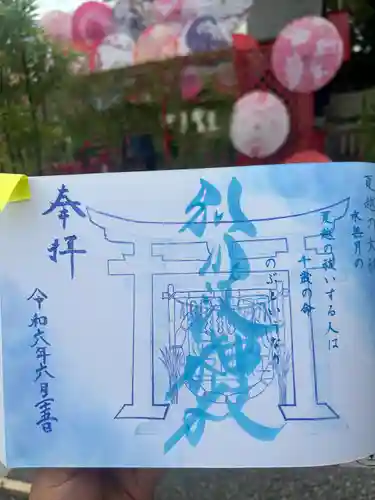 夏越の大祓
水無月の
夏越の祓いする人は
千歳の命
のぶというなり
別小江神社
奉拝
令和六年六月